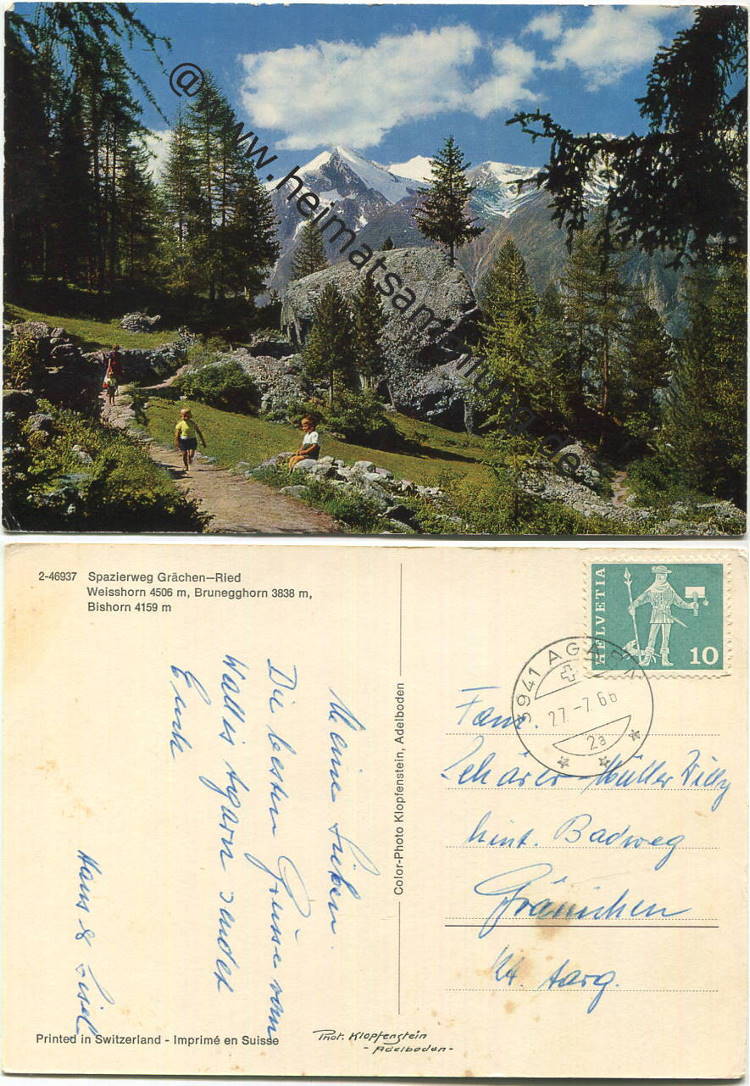 @ www.heimatsammlung.de
2-46937 Spazierweg Grächen—Ried
Weisshorn 4506 m, Brunegghorn 3838 m,
Bishorn 4159 m
Meine Lieben.
Die besten Grüsse vom
Wallis Agarn sendet
Euch
Hans & Lisel
Color-Photo Klopfenstein, Adelboden
HELVETIA
10
3941 AGARN
27-7.66
2a
Fam.
Schärer-Müller Willy
hint. Badweg
Gränichen
Kt. Aarg.
Printed in Switzerland - Imprimé en Suisse
Phot. Klopfenstein
- Adelboden -